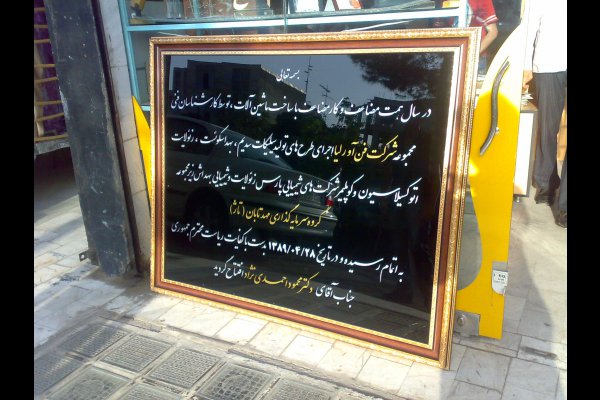 بسمه تعالی
در سال همت مضاعف و کار مضاعف با ساخت ماشین آلات، توسط کارشناسان فنی
مجموعه شرکت فن آور لیا اجرای طرح های تولید سیلیکات سدیم، بهداسکونت، زئولایت
اتوکسیلاسیون و کوپلیمر شرکت های شیمیایی پارس زئولایت و شیمیایی بهداش زیرمجموعه
گروه سرمایه گذاری مهد تابان (تاژ)
به اتمام رسیده و در تاریخ ۱۳۸۹/۰۴/۲۸ بدست با کفایت ریاست محترم جمهوری
جناب آقای دکتر محمود احمدی نژاد افتتاح گردید